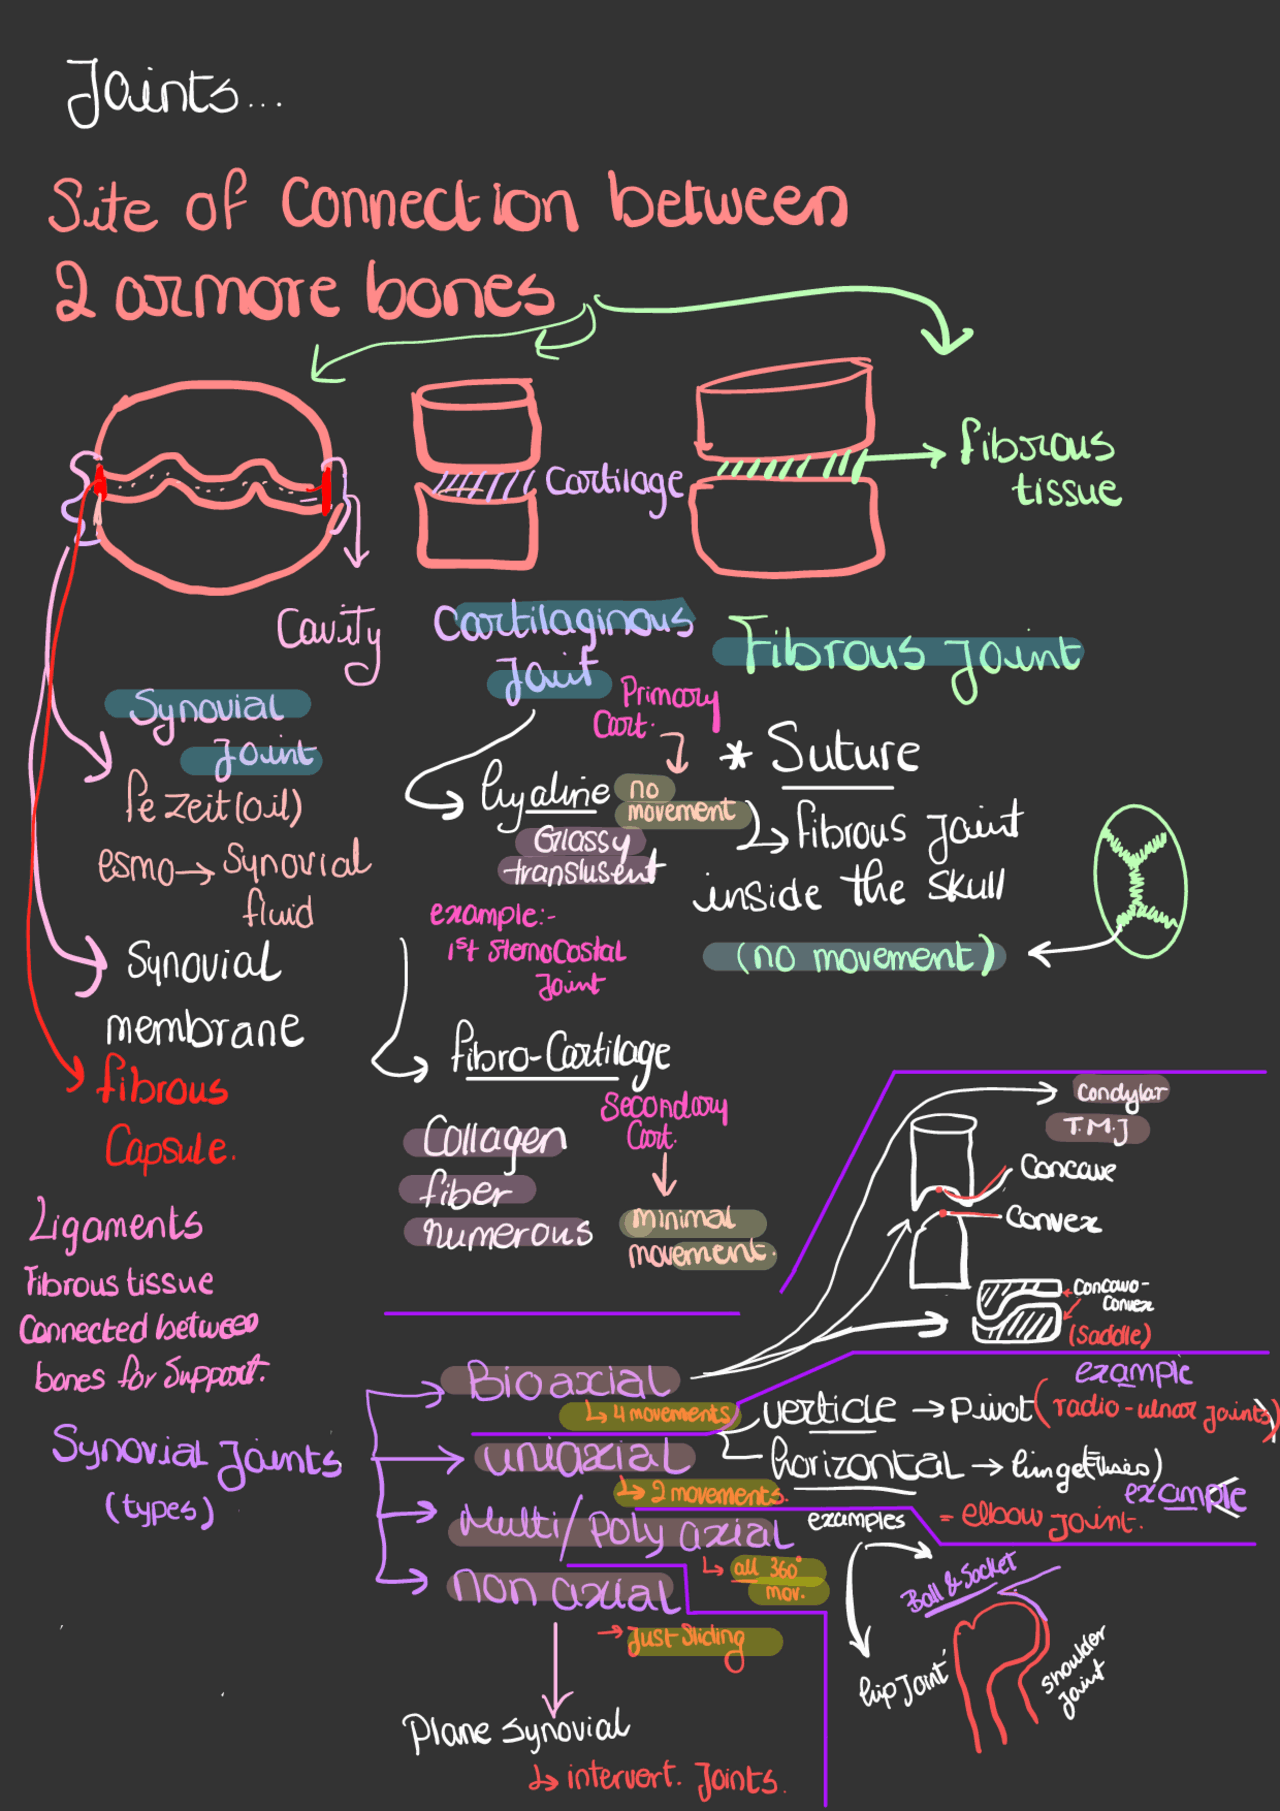 Joints...
Site of Connection between
2 or more bones
Cartilage
fibrous
tissue
Cavity
Cartilaginous
Joint
Fibrous Joint
Synovial
Joint
fe zeit (oil)
esmo → Synovial
fluid
Synovial
membrane
fibrous
Capsule.
Ligaments
Fibrous tissue
Connected between
bones for Support.
Primary
Cart.
hyaline
no
movement
Glassy
translusent
example:-
1st SternoCostal
Joint
fibro-Cartilage
Secondary
Cart.
Collagen
fiber
numerous
minimal
movement.
* Suture
fibrous Joint
inside the skull
(no movement)
Condylar
T.M.J
Concave
Convex
Concavo-
Convex
(Saddle)
Synovial Joints
(types)
Bioaxial
4 movements
uniaxial
2 movements.
verticle → Pivot (radio-ulnar joints)
example
horizontal → hinge
example
= elbow joint.
Multi/Poly axial
all 360°
mov.
examples
Ball & Socket
hip Joint
shoulder
Joint
non axial
→ Just Sliding
Plane Synovial
intervert. Joints.